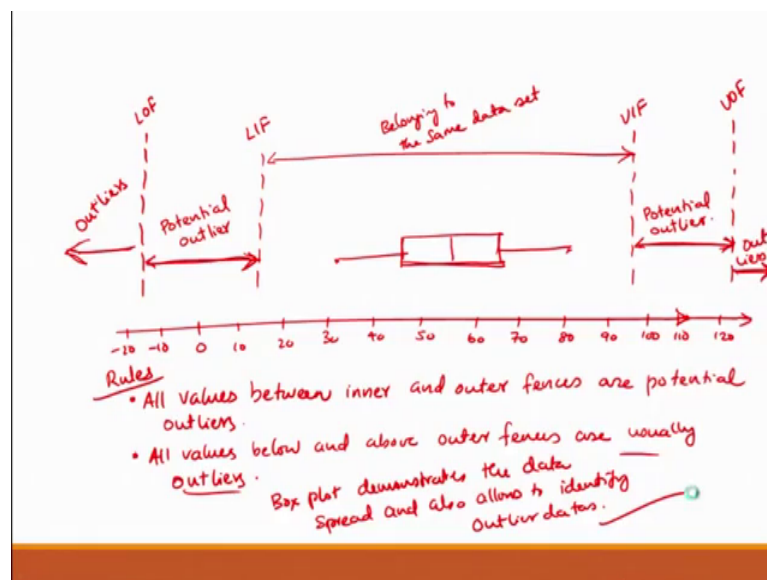 LOF
LIF
Belonging to
the same data set
UIF
UOF
Outliers
Potential
outlier
Potential
outlier.
Out
liers
-20 -10 0 10 20 30 40 50 60 70 80 90 100 110 120
Rules
• All values between inner and outer fences are potential
outliers.
• All values below and above outer fences are usually
outliers.
Box plot demonstrates the data
spread and also allows to identify
outlier datas.